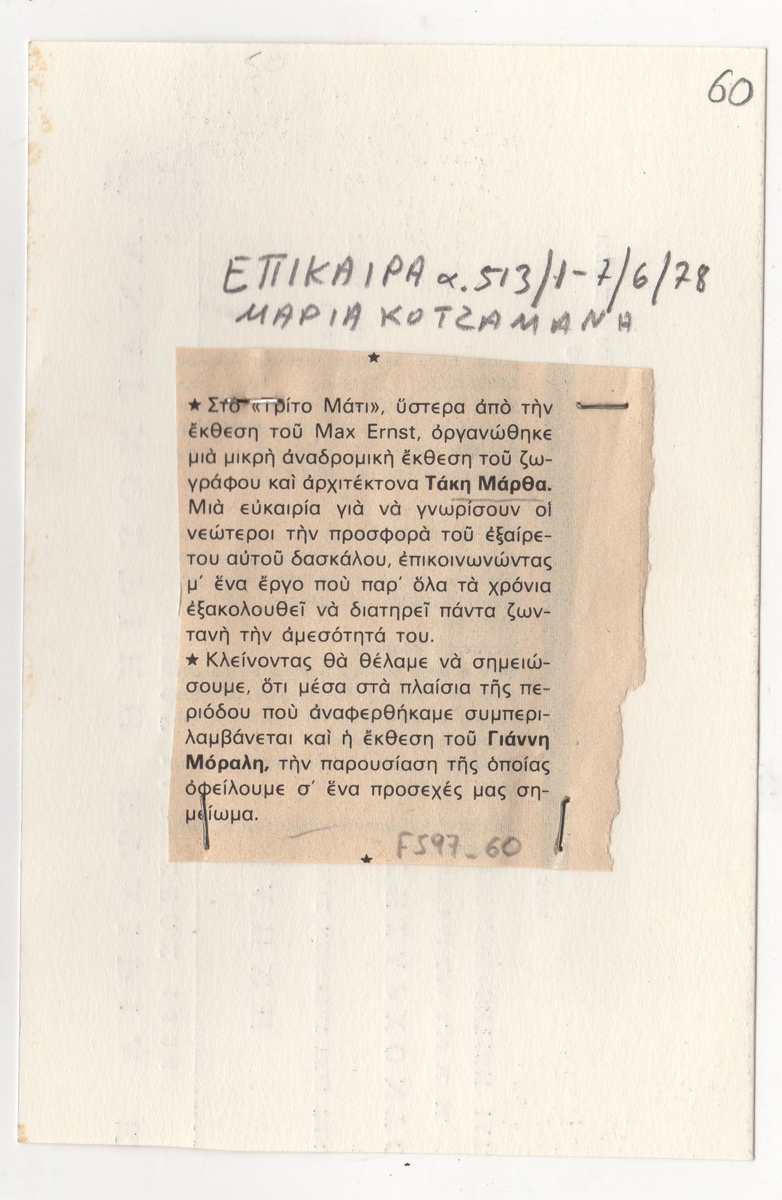 60
ΕΠΙΚΑΙΡΑ α. 513/1-7/6/78
ΜΑΡΙΑ ΚΟΤΖΑΜΑΝΗ
★ Στὸ «Τρίτο Μάτι», ὕστερα ἀπὸ τὴν
ἔκθεση τοῦ Max Ernst, ὀργανώθηκε
μιὰ μικρὴ ἀναδρομικὴ ἔκθεση τοῦ ζω-
γράφου καὶ ἀρχιτέκτονα Τάκη Μάρθα.
Μιὰ εὐκαιρία γιὰ νὰ γνωρίσουν οἱ
νεώτεροι τὴν προσφορὰ τοῦ ἐξαίρε-
του αὐτοῦ δασκάλου, ἐπικοινωνώντας
μ' ἕνα ἔργο ποὺ παρ' ὅλα τὰ χρόνια
ἐξακολουθεῖ νὰ διατηρεῖ πάντα ζων-
τανὴ τὴν ἀμεσότητά του.
★ Κλείνοντας θὰ θέλαμε νὰ σημειώ-
σουμε, ὅτι μέσα στὰ πλαίσια τῆς πε-
ριόδου ποὺ ἀναφερθήκαμε συμπερι-
λαμβάνεται καὶ ἡ ἔκθεση τοῦ Γιάννη
Μόραλη, τὴν παρουσίαση τῆς ὁποίας
ὀφείλουμε σ' ἕνα προσεχές μας ση-
μείωμα.
F597_60